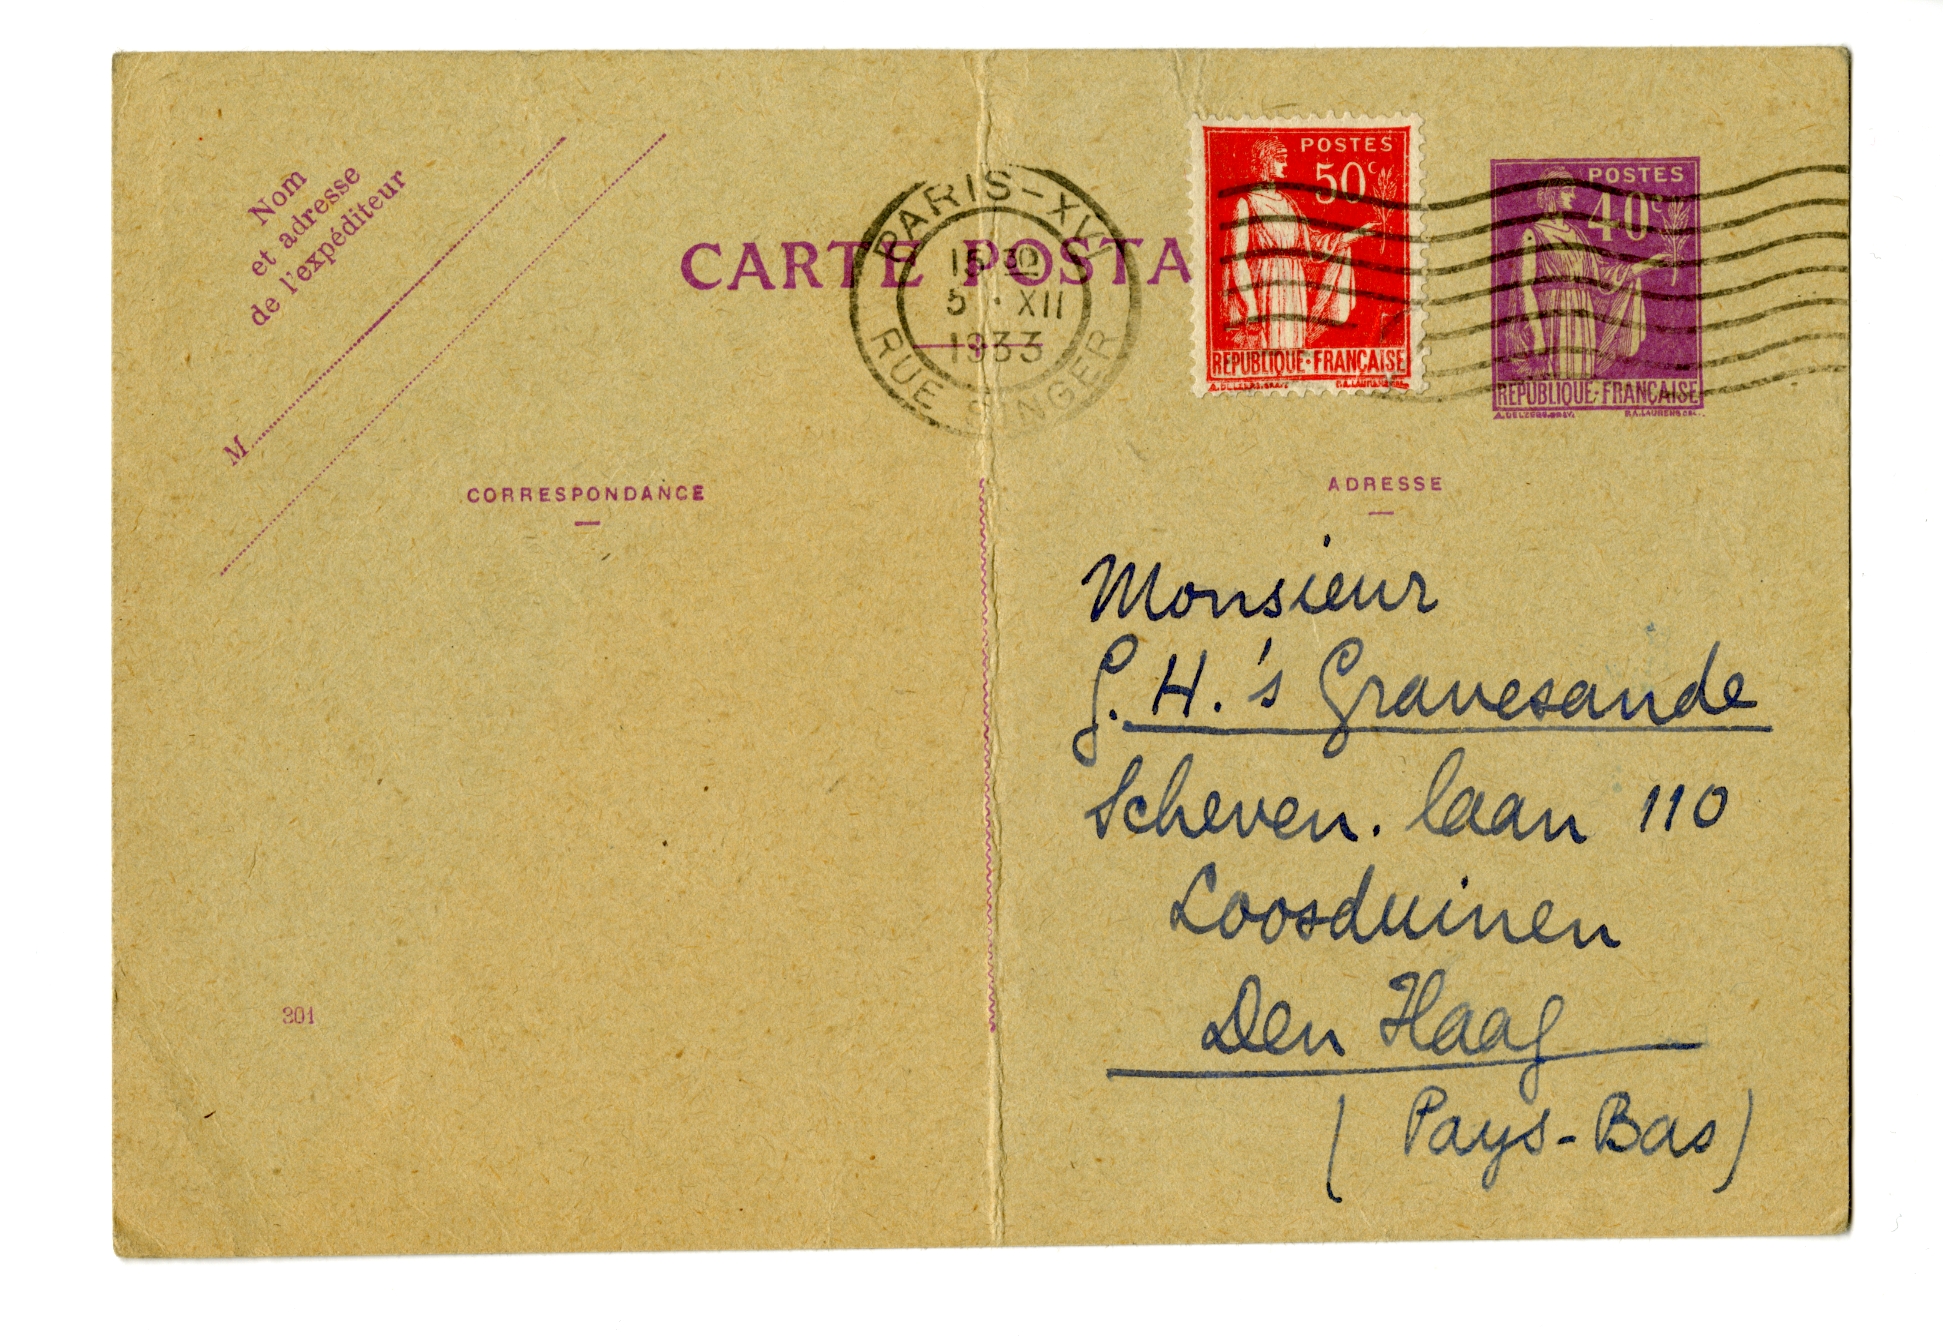 Nom
et adresse
de l'expéditeur
M
CARTE POSTA
PARIS-XVI
15 30
5 · XII
1933
RUE SINGER
POSTES
50c
REPUBLIQUE·FRANÇAISE
POSTES
40c
REPUBLIQUE·FRANÇAISE
CORRESPONDANCE
ADRESSE
Monsieur
G. H. 's Gravesande
Scheven. laan 110
Loosduinen
Den Haag
(Pays-Bas)
301